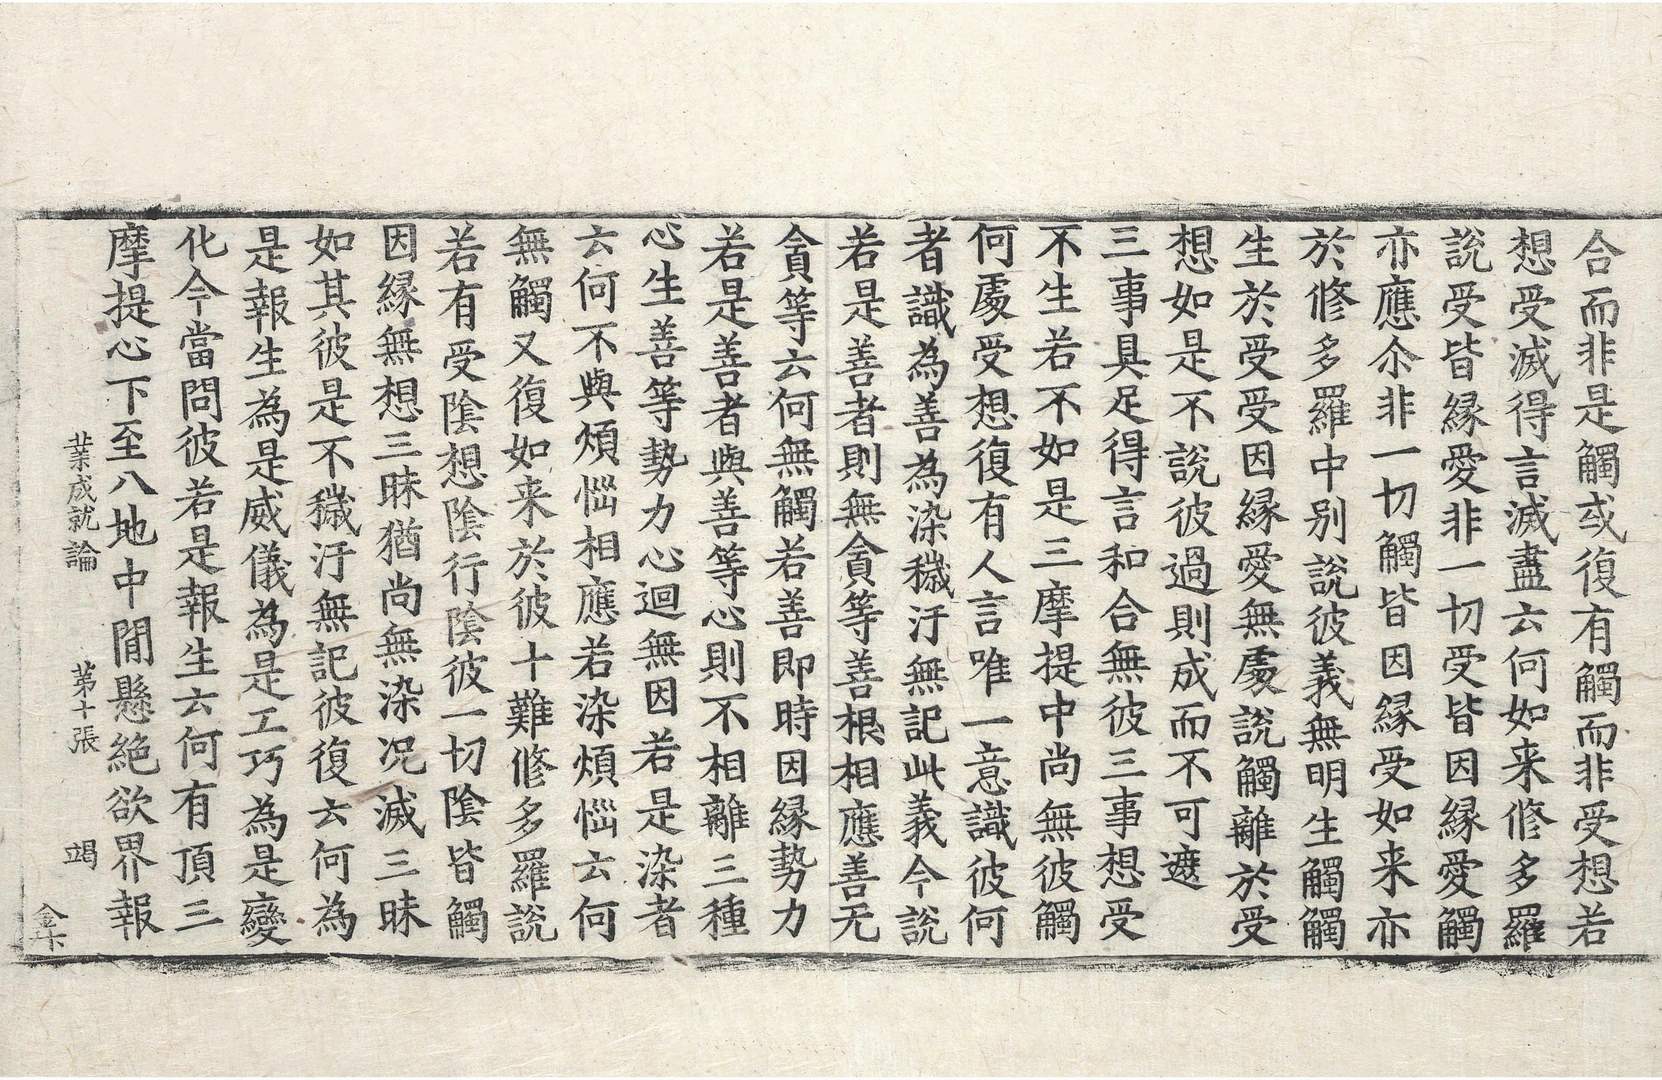 合而非是觸或復有觸而非受想若
想受滅得言滅盡云何如来修多羅
說受皆緣愛非一切受皆因緣愛觸
亦應尒非一切觸皆因緣受如来亦
於修多羅中别說彼義無明生觸觸
生於受受因緣愛無處說觸離於受
想如是不說彼過則成而不可遮
三事具足得言和合無彼三事想受
不生若不如是三摩提中尚無彼觸
何處受想復有人言唯一意識彼何
者識為善為染穢汙無記此義今說
若是善者則無貪等善根相應善无
貪等云何無觸若善即時因緣勢力
若是善者與善等心則不相離三種
心生善等勢力心迴無因若是染者
云何不與煩惱相應若染煩惱云何
無觸又復如来於彼十難修多羅說
若有受陰想陰行陰彼一切陰皆觸
因緣無想三昧猶尚無染况滅三昧
如其彼是不穢汙無記彼復云何為
是報生為是威儀為是工巧為是變
化今當問彼若是報生云何有頂三
摩提心下至八地中間懸絕欲界報
業成就論 第十張 竭
金下